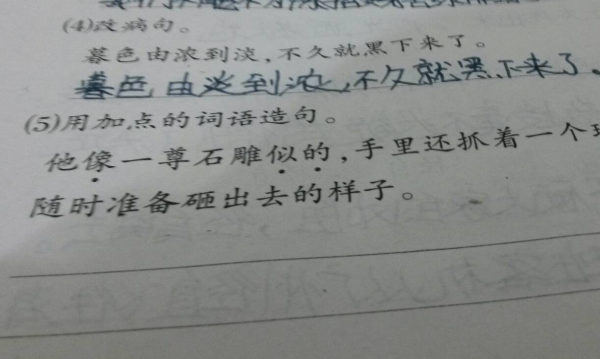 (4)改病句。
暮色由浓到淡，不久就黑下来了。
暮色由淡到浓，不久就黑下来了。
(5)用加点的词语造句。
他像一尊石雕似的，手里还抓着一个
随时准备砸出去的样子。